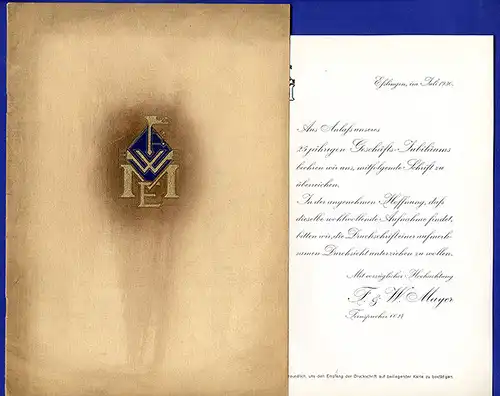 F
W
M
E
Eßlingen, im Juli 1930.
Aus Anlaß unseres
25 jährigen Geschäfts-Jubiläums
beehren wir uns, mitfolgende Schrift zu
überreichen.
In der angenehmen Hoffnung, daß
dieselbe wohlwollende Aufnahme findet,
bitten wir, die Druckschrift einer aufmerk-
samen Durchsicht unterziehen zu wollen.
Mit vorzüglicher Hochachtung
F. & W. Mayer
Fernsprecher
freundlich, uns den Empfang der Druckschrift auf beiliegender Karte zu bestätigen.